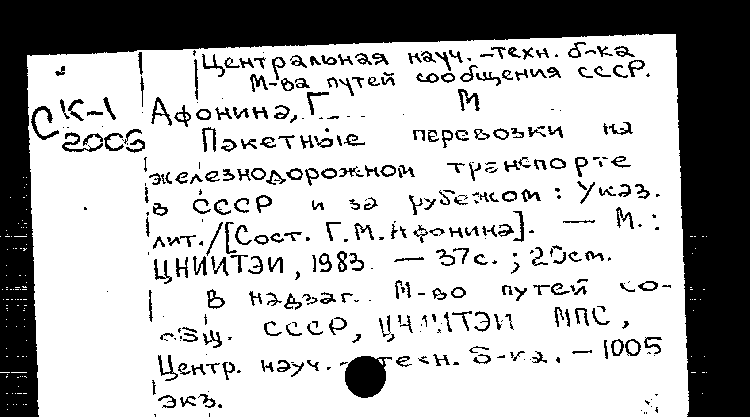 Центральная науч.-техн. б-ка
М-ва путей сообщения СССР.
СК-1
2006
Афонина, Г М
Пакетные перевозки на
железнодорожном транспорте
в СССР и за рубежом: Указ.
лит./[Сост. Г.М.Афонина]. — М.:
ЦНИИТЭИ, 1983 — 37с.; 20см.
В надзаг. М-во путей со-
общ. СССР, ЦНИИТЭИ МПС,
Центр. науч.-техн. б-ка. — 1005
экз.